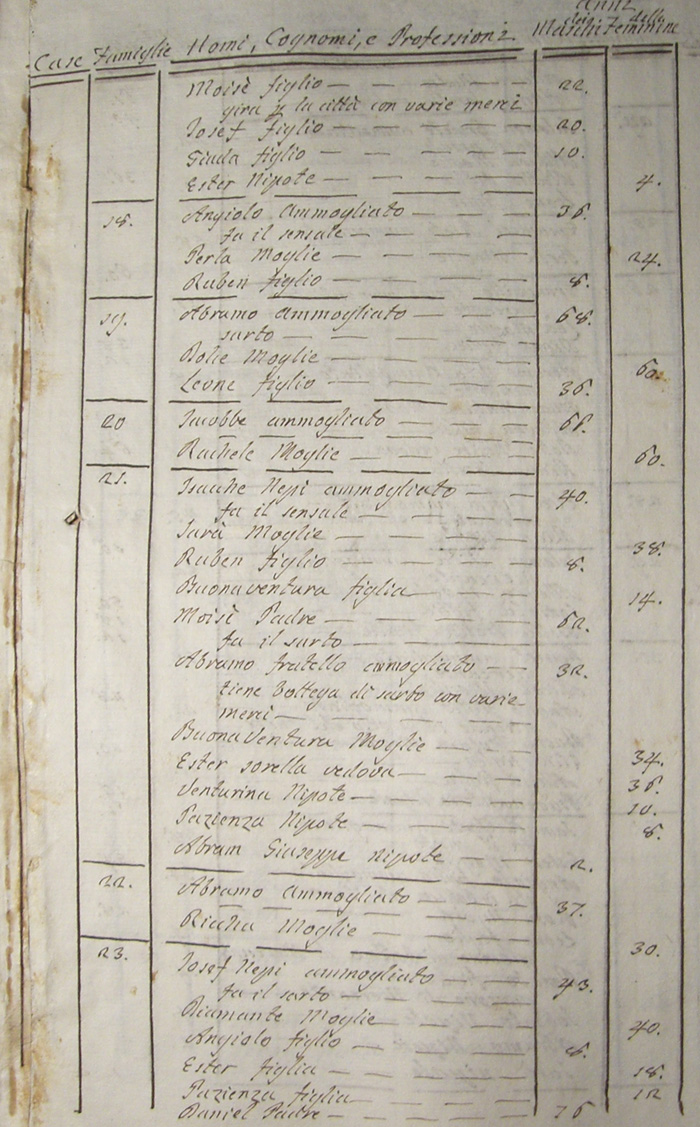 Anni
Case Famiglie Nomi, Cognomi, e Professioni dei Maschi delle Feminine
Moisè figlio 22.
gira p la città con varie merci
Iosef figlio 20.
Giuda figlio 10.
Ester Nipote 4.
18. Angiolo Ammogliato 36.
fa il sensale
Perla Moglie 24.
Ruben figlio 8.
19. Abramo Ammogliato 68.
sarto
Dolce Moglie 60.
Leone figlio 36.
20 Jacobbe ammogliato 66.
Rachele Moglie 60.
21. Isache Nepi ammogliato 40.
fa il sensale
Sarà Moglie 38.
Ruben figlio 8.
Buonaventura figlia 14.
Moisè Padre 62.
fa il sarto
Abramo fratello ammogliato 32.
tiene bottega di sarto con varie
merci
Buona Ventura Moglie 34.
Ester sorella vedova 36.
Venturina Nipote 10.
Pazienza Nipote 8.
Abram Giuseppe nipote 2.
22. Abramo Ammogliato 37.
Moglie 30.
23. Iosef Nepi ammogliato 43.
fa il sarto
Diamante Moglie 40.
Angiolo figlio 8.
Ester figlia 18.
Pazienza figlia 12
Daniel Padre 76